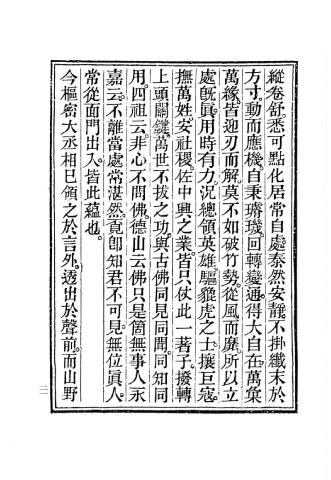 縱卷舒。悉可點化居常自處泰然安靜。不掛纖末於
方寸。動而應機。自秉璿璣。回轉變通。得大自在。萬彙
萬緣。皆迎刃而解。莫不如破竹勢。從風而靡。所以立
處旣眞。用時有力。況總領英雄。驅貔虎之士。攘巨寇。
撫萬姓。安社稷。佐中興之業。皆只仗此一著子。撥轉
上頭關鍵。萬世不拔之功。與古佛同見同聞。同知同
用。四祖云。非心不問佛。德山云佛只是箇無事人。永
嘉云。不離當處常湛然。覓卽知君不可見。無位眞人。
常從面門出入。皆此蘊也。
今樞密大丞相已領之於言外。透出於聲前。而山野
二